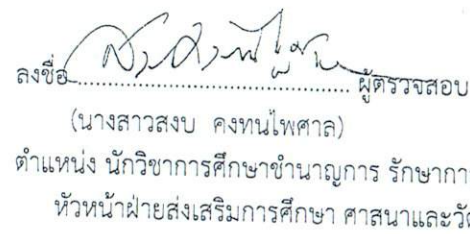 ลงชื่อ.......................................... ผู้ตรวจสอบ
(นางสาวสงบ คงทนไพศาล)
ตำแหน่ง นักวิชาการศึกษาชำนาญการ รักษากา
หัวหน้าฝ่ายส่งเสริมการศึกษา ศาสนาและวั